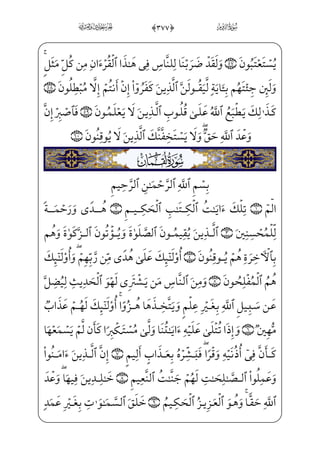 الجزء الحادي والعشرون ﴿٣٧٧﴾ سورة الروم
يُسْتَعْتَبُونَ ۝ وَلَقَدْ ضَرَبْنَا لِلنَّاسِ فِى هَٰذَا ٱلْقُرْءَانِ مِن كُلِّ مَثَلٍ ۚ
وَلَئِن جِئْتَهُم بِـَٔايَةٍ لَّيَقُولَنَّ ٱلَّذِينَ كَفَرُوٓا۟ إِنْ أَنتُمْ إِلَّا مُبْطِلُونَ ۝
كَذَٰلِكَ يَطْبَعُ ٱللَّهُ عَلَىٰ قُلُوبِ ٱلَّذِينَ لَا يَعْلَمُونَ ۝ فَٱصْبِرْ إِنَّ
وَعْدَ ٱللَّهِ حَقٌّ ۖ وَلَا يَسْتَخِفَّنَّكَ ٱلَّذِينَ لَا يُوقِنُونَ ۝
سُورَةُ لُقْمَانَ
بِسْمِ ٱللَّهِ ٱلرَّحْمَٰنِ ٱلرَّحِيمِ
الٓمٓ ۝ تِلْكَ ءَايَٰتُ ٱلْكِتَٰبِ ٱلْحَكِيمِ ۝ هُدًى وَرَحْمَةً
لِّلْمُحْسِنِينَ ۝ ٱلَّذِينَ يُقِيمُونَ ٱلصَّلَوٰةَ وَيُؤْتُونَ ٱلزَّكَوٰةَ وَهُم
بِٱلْءَاخِرَةِ هُمْ يُوقِنُونَ ۝ أُو۟لَٰٓئِكَ عَلَىٰ هُدًى مِّن رَّبِّهِمْ ۖ وَأُو۟لَٰٓئِكَ
هُمُ ٱلْمُفْلِحُونَ ۝ وَمِنَ ٱلنَّاسِ مَن يَشْتَرِى لَهْوَ ٱلْحَدِيثِ لِيُضِلَّ
عَن سَبِيلِ ٱللَّهِ بِغَيْرِ عِلْمٍ وَيَتَّخِذَهَا هُزُوًا ۚ أُو۟لَٰٓئِكَ لَهُمْ عَذَابٌ
مُّهِينٌ ۝ وَإِذَا تُتْلَىٰ عَلَيْهِ ءَايَٰتُنَا وَلَّىٰ مُسْتَكْبِرًا كَأَن لَّمْ يَسْمَعْهَا
كَأَنَّ فِىٓ أُذُنَيْهِ وَقْرًا ۖ فَبَشِّرْهُ بِعَذَابٍ أَلِيمٍ ۝ إِنَّ ٱلَّذِينَ ءَامَنُوا۟
وَعَمِلُوا۟ ٱلصَّٰلِحَٰتِ لَهُمْ جَنَّٰتُ ٱلنَّعِيمِ ۝ خَٰلِدِينَ فِيهَا ۖ وَعْدَ
ٱللَّهِ حَقًّا ۚ وَهُوَ ٱلْعَزِيزُ ٱلْحَكِيمُ ۝ خَلَقَ ٱلسَّمَٰوَٰتِ بِغَيْرِ عَمَدٍ